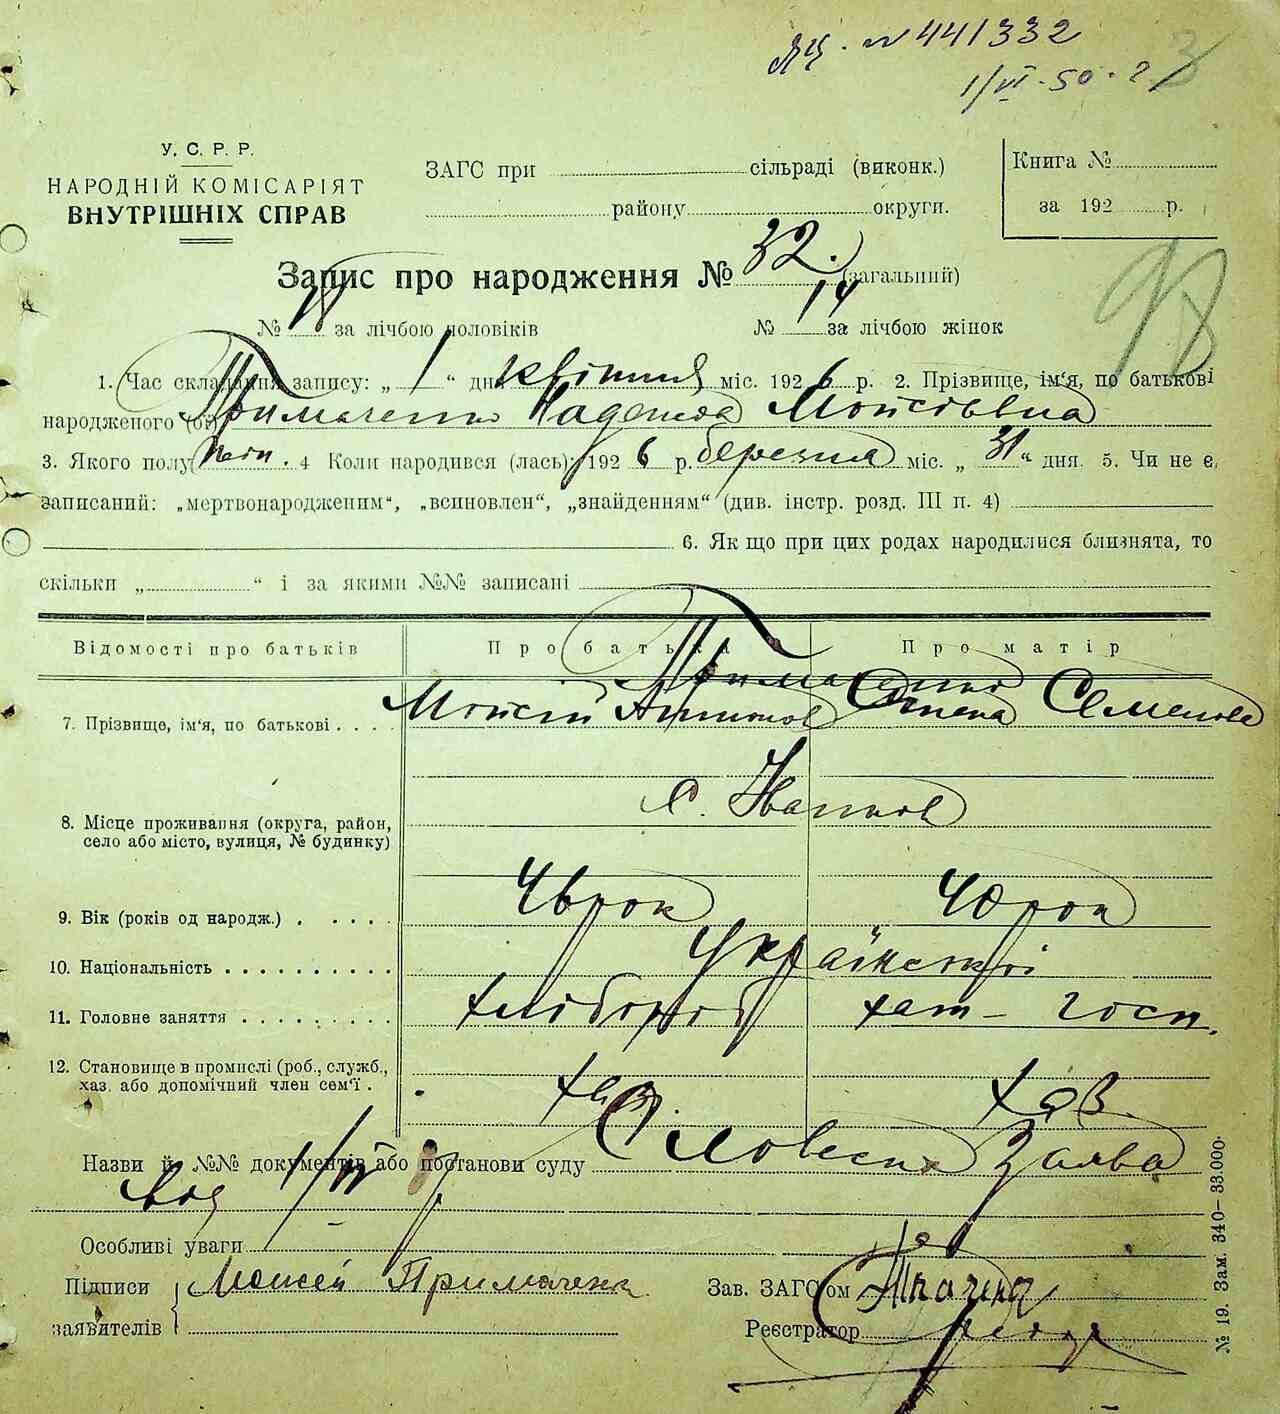 № 441332
1/VI-50.
У. С. Р. Р.
НАРОДНІЙ КОМІСАРІЯТ
ВНУТРІШНІХ СПРАВ
ЗАГС при сільраді (виконк.)
району округи.
Книга №
за 192 р.
Запис про народження № 32. (загальний)
№ за лічбою чоловіків № 14 за лічбою жінок
1. Час складання запису: „ 1 “ дня квітня міс. 1926 р. 2. Прізвище, ім'я, по батькові
народженого (ої) Примаченко Надежда Мойсіївна
3. Якого полу жін. 4 Коли народився (лась): 192 6 р. березня міс. „ 31 “ дня. 5. Чи не є
записаний: „мертвонародженим“, „всиновлен“, „знайденням“ (див. інстр. розд. III п. 4)
6. Як що при цих родах народилися близнята, то
скільки „ “ і за якими №№ записані
Відомості про батьків Про батька Про матір
Примаченко
7. Прізвище, ім'я, по батькові Мойсій Антонов Олена Семенова
с. Іванков
8. Місце проживання (округа, район,
село або місто, вулиця, № будинку)
9. Вік (років од народж.)
10. Національність Української
11. Головне заняття хлібороб хат- госп.
12. Становище в промислі (роб., служб.,
хаз. або допомічний член сем'ї. хаз. хаз.
Назви й №№ документів або постанови суду Словесна Заява
від 1/IV
Особливі уваги
Підписи
заявителів
Моисей Примаченко
Зав. ЗАГС'ом
Реєстратор
№ 19. Зам. 340—33.000.